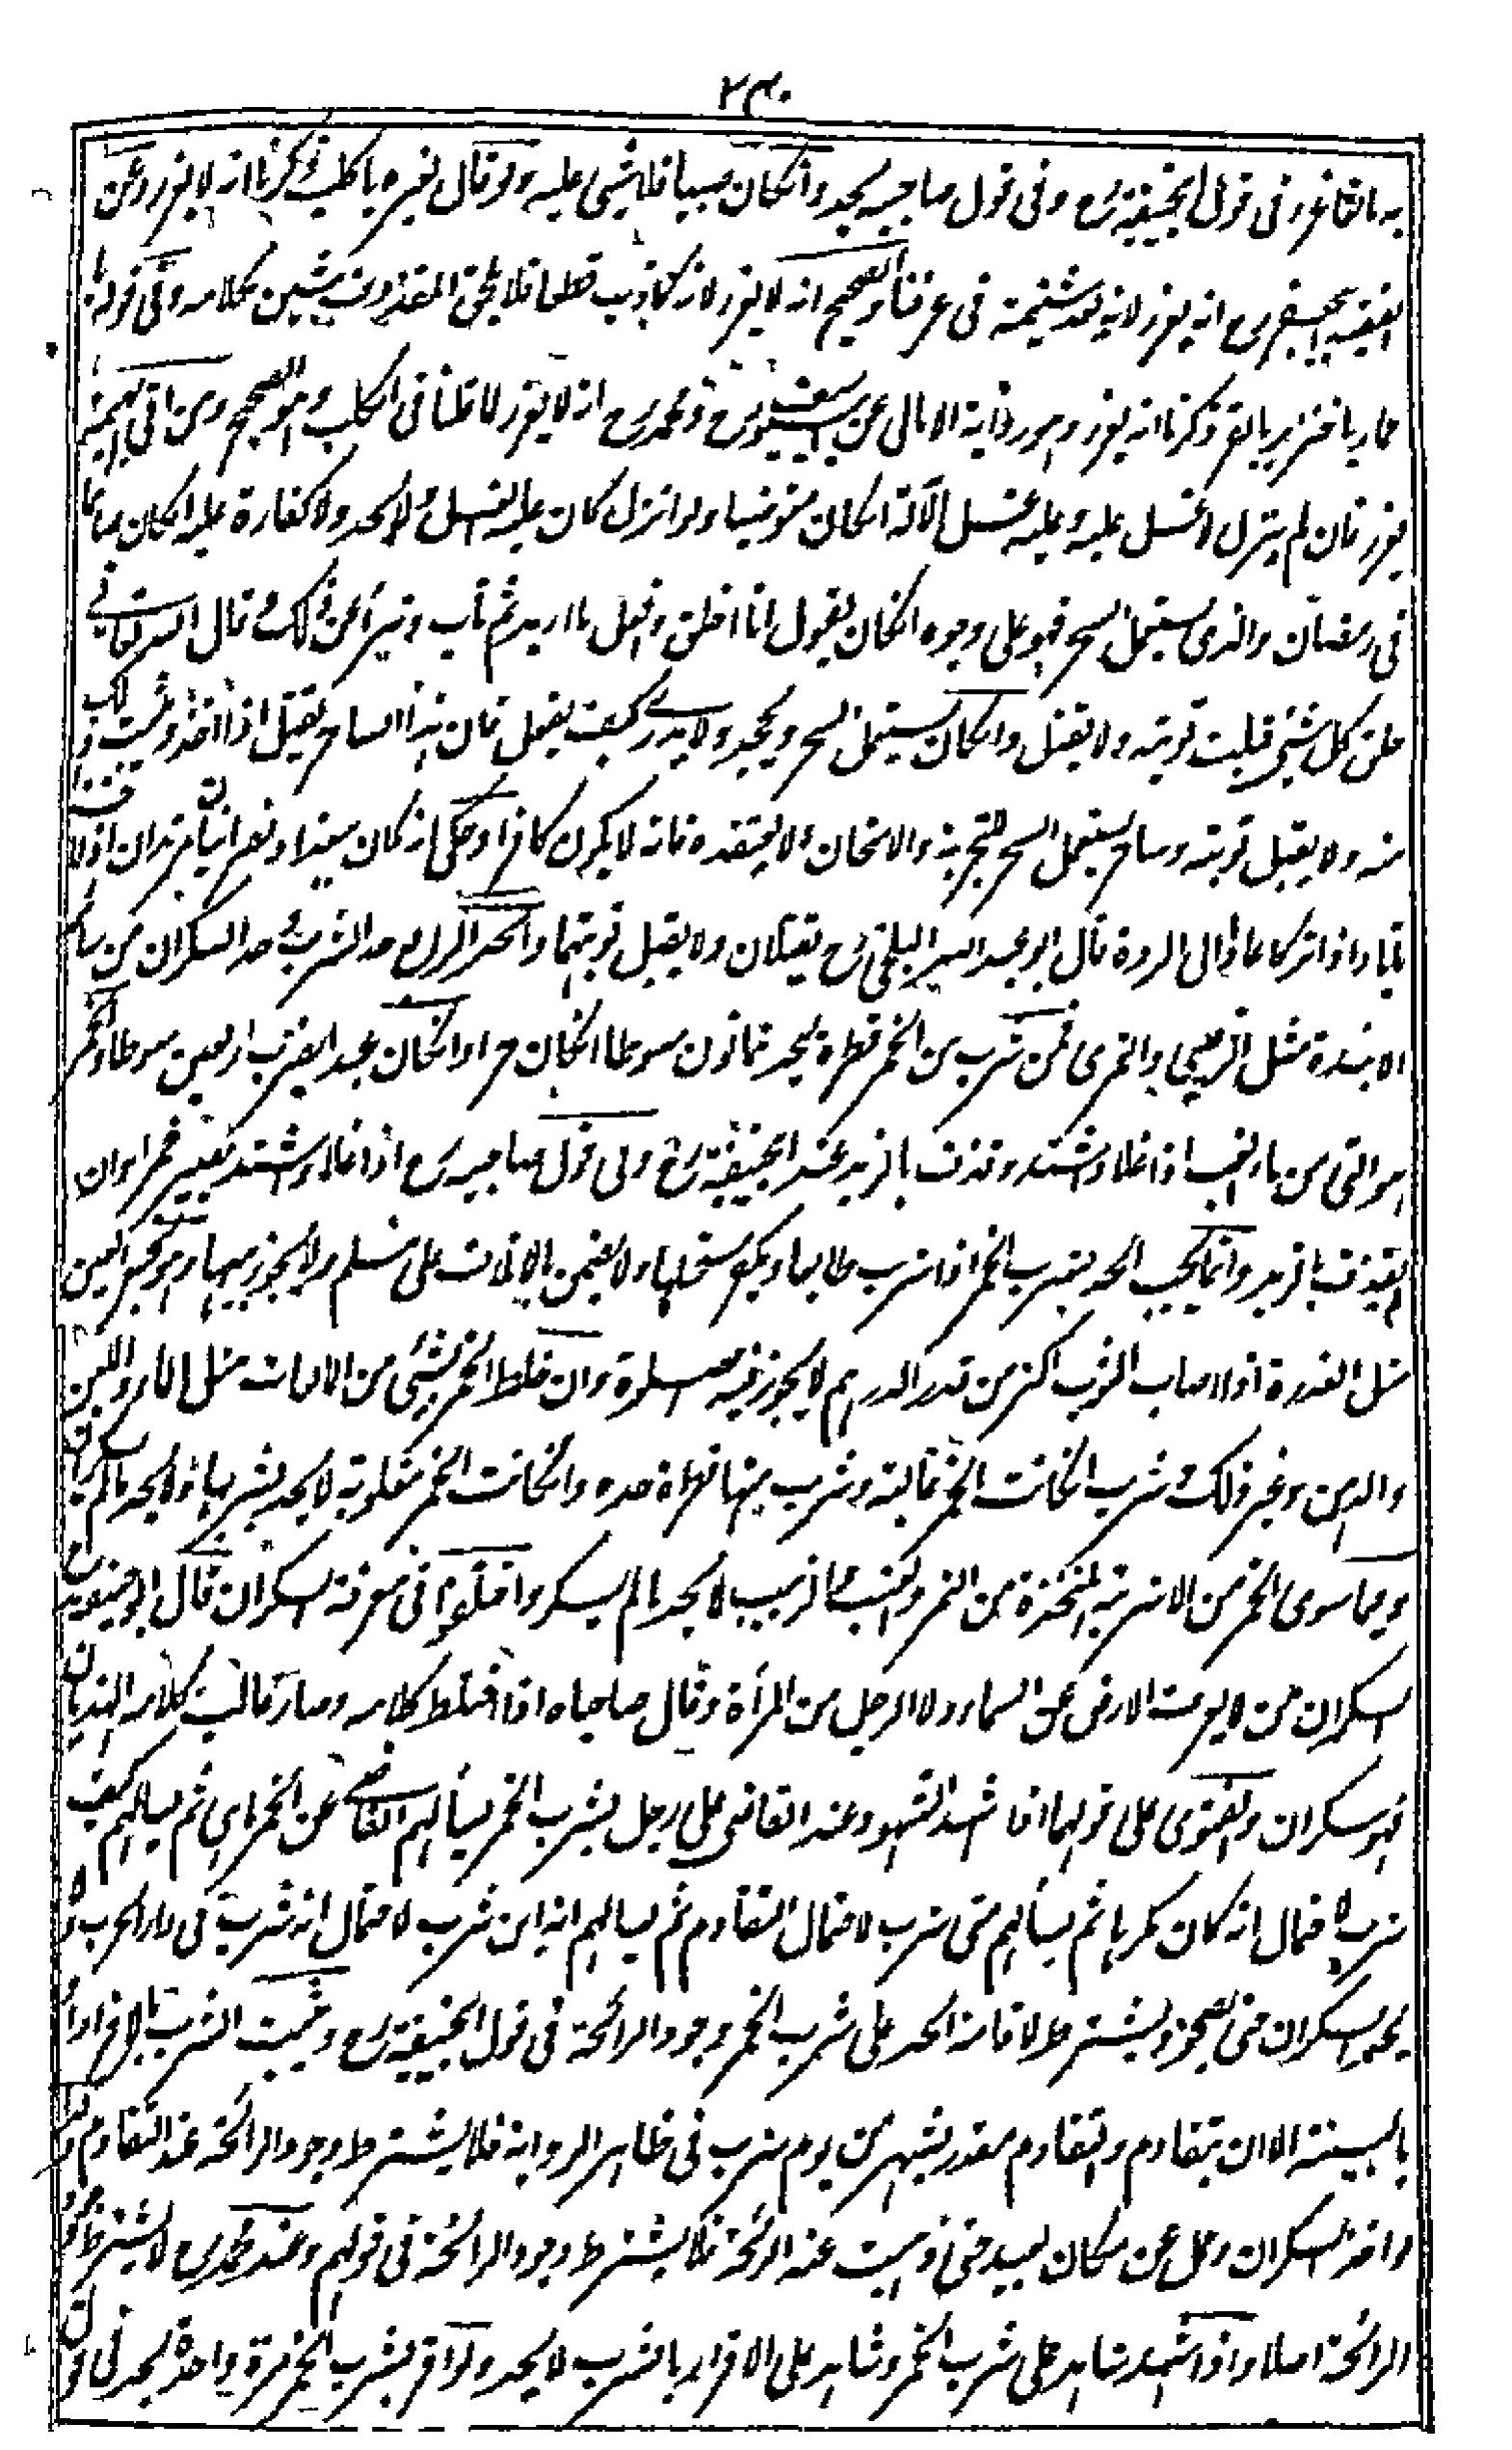 ۲۳۰
به مالقاغر وفى قول ابيحنيفة رح وفى قول صاحبيه يحد وانكان صبيا فلا شىء عليه ولو قال لغيره يا كلب ذكرنا انه لا يعزر وعن
الفقيه ابيجعفر رح انه يعزر لانه يعد شتيمة فى عرفنا والصحيح انه لا يعزر لانه كاذب قطعا فلا يلحق المقذوف شين بكلامه وفى قوله يا
حمار يا خنزير يا بقر ذكرنا انه يعزر وهو رواية الامالى عن ابييوسف رح ومحمد رح انه لا يعزر لما قلنا فى الكلب وهو الصحيح ومن اتى البهيمة
يعزر فان لم ينزل لا غسل عليه وعليه غسل الآلة انكان متوضيا ولو انزل كان عليه الغسل ولا يحد ولا كفارة عليه انكان صائما
فى رمضان والذى يستعمل السحر فهو على وجوه انكان يقول انا اخلق وافعل ما اريد ثم تاب وتبرأ عن ذلك وقال الله تعالى
خلق كل شىء قبلت توبته ولا يقتل وانكان يستعمل السحر ويجحد ولا يدرى كيف يفعل فان هذا الساحر يقتل اذا اخذ وثبت ذلك
منه ولا يقبل توبته وساحر يستعمل السحر للتجربة والامتحان ولا يعتقده فانه لا يكون كافرا وحكى انه كان ببغداد نصرانيان مرتدان اذا اخذا
تابا واذا تركا عادا الى الردة قال ابو عبد الله البلخى رح يقتلان ولا يقبل توبتهما والحد الرابع حد الشرب وحد السكران من سائر
الانبذة مثل الزبيبى والتمرى فمن شرب من الخمر قطرة يحد ثمانون سوطا انكان حرا وانكان عبدا يضرب اربعين سوطا والخمر
هو التى من ماء العنب اذا غلا واشتد وقذف بالزبد عند ابيحنيفة رح وفى قول صاحبيه رح اذا غلا واشتد يصير خمرا وان
لم يقذف بالزبد وانما يجب الحد بشرب الخمر اذا شرب طائعا ويكفر مستحلها ولا يضمن الاتلاف على مسلم ولا يجوز بيعها وهو نجس العين
مثل العذرة اذا اصاب الثوب اكثر من قدر الدرهم لا يجوز فيه صلوة وان خلط الخمر بشىء من المائعات مثل الماء واللبن
والدهن وغير ذلك وشرب انكانت الخمر غالبة وشرب منها قطرة حده وانكانت الخمر مغلوبة لا يحد بشربها ولا يحد مالم يسكر
وبما سوى الخمر من الاشربة المتخذة من التمر والعنب والزبيب لا يحد مالم يسكر واختلفوا فى معرفة السكران قال ابوحنيفة رح
السكران من لا يعرف الارض عن السماء ولا الرجل من المرأة وقال صاحباه اذا اختلط كلامه وصار غالب كلامه الهذيان
فهو سكران والفتوى على قولهما اذا شهد الشهود عند القاضى على رجل بشرب الخمر يسألهم القاضى عن الخمر ما هى ثم يسألهم كيف
شرب لاحتمال انه كان مكرها ثم يسألهم متى شرب لاحتمال التقادم ثم يسألهم انه اين شرب لاحتمال انه شرب فى دار الحرب ولا
يحد السكران حتى يصحو ويشترط لاقامة الحد على شرب الخمر وجود الرائحة فى قول ابيحنيفة رح ويثبت الشرب بالاقرار او
بالبينة الا ان تقادم والتقادم مقدر بشهر من يوم شرب فى ظاهر الرواية فلا يشترط وجود الرائحة عند التقادم
واخذ السكران وحمل عن مكان بعيد حتى ذهبت عنه الرائحة فلا يشترط وجود الرائحة فى قولهم وعند محمد رح لا يشترط وجود
الرائحة اصلا واذا شهد شاهد على شرب الخمر وشاهد على الاقرار بالشرب لا يحد ولو اقر بشرب الخمر مرة واحدة يحد فى قول